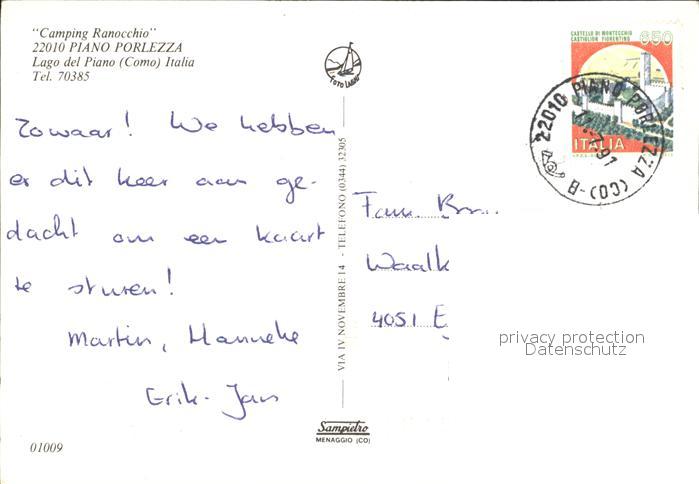 "Camping Ranocchio"
22010 PIANO PORLEZZA
Lago del Piano (Como) Italia
Tel. 70385
Zowaar! We hebben
er dit keer aan ge-
dacht om een kaart
te sturen!
Martin, Hanneke
Erik-Jan
01009
FOTO LABO
VIA IV NOVEMBRE 14 - TELEFONO (0344) 32305
Sampietro
MENAGGIO (CO)
CASTELLO DI MONTECCHIO
CASTIGLION FIORENTINO
650
ITALIA
22010 PIANO PORLEZZA (CO) - B
.7.91
Fam.
Waalk
4051 E
privacy protection
Datenschutz